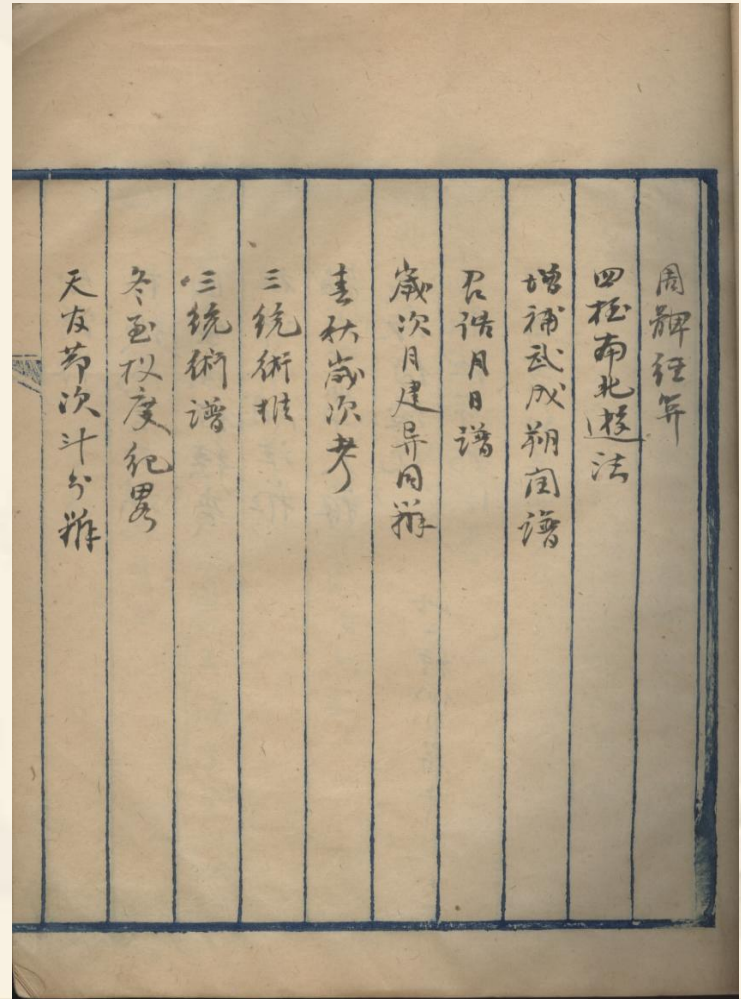 周髀經算
四极南北遊法
增補武成朔閏譜
召誥月日譜
歲次月建异同辨
春秋歲次考
三統術推
三統術譜
冬至权度紀畧
天节次斗分辨